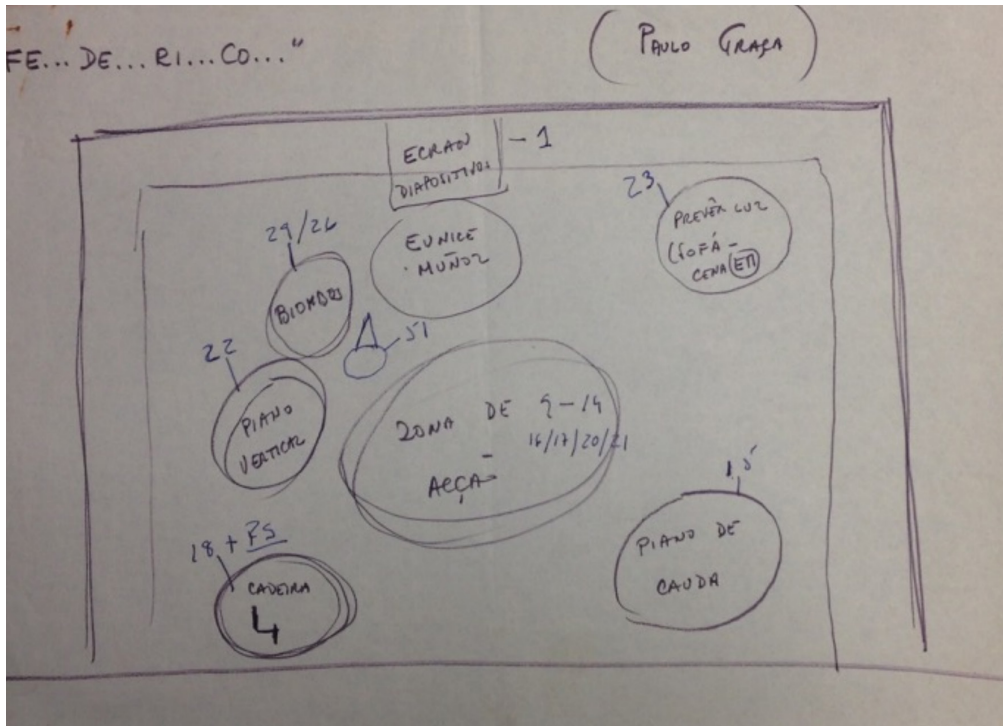 FE... DE... RI... CO..."
(PAULO GRAÇA)
ECRAN - 1
DIAPOSITIVOS
23
PREVÊR LUZ
(SOFÁ -
CENA ETI
29/26
EUNICE
MUÑOZ
BIOMBOS
51
22
PIANO
VERTICAL
ZONA DE 9-14
16/17/20/21
ACÇÃO
15
PIANO DE
CAUDA
18 + FS
CADEIRA
4